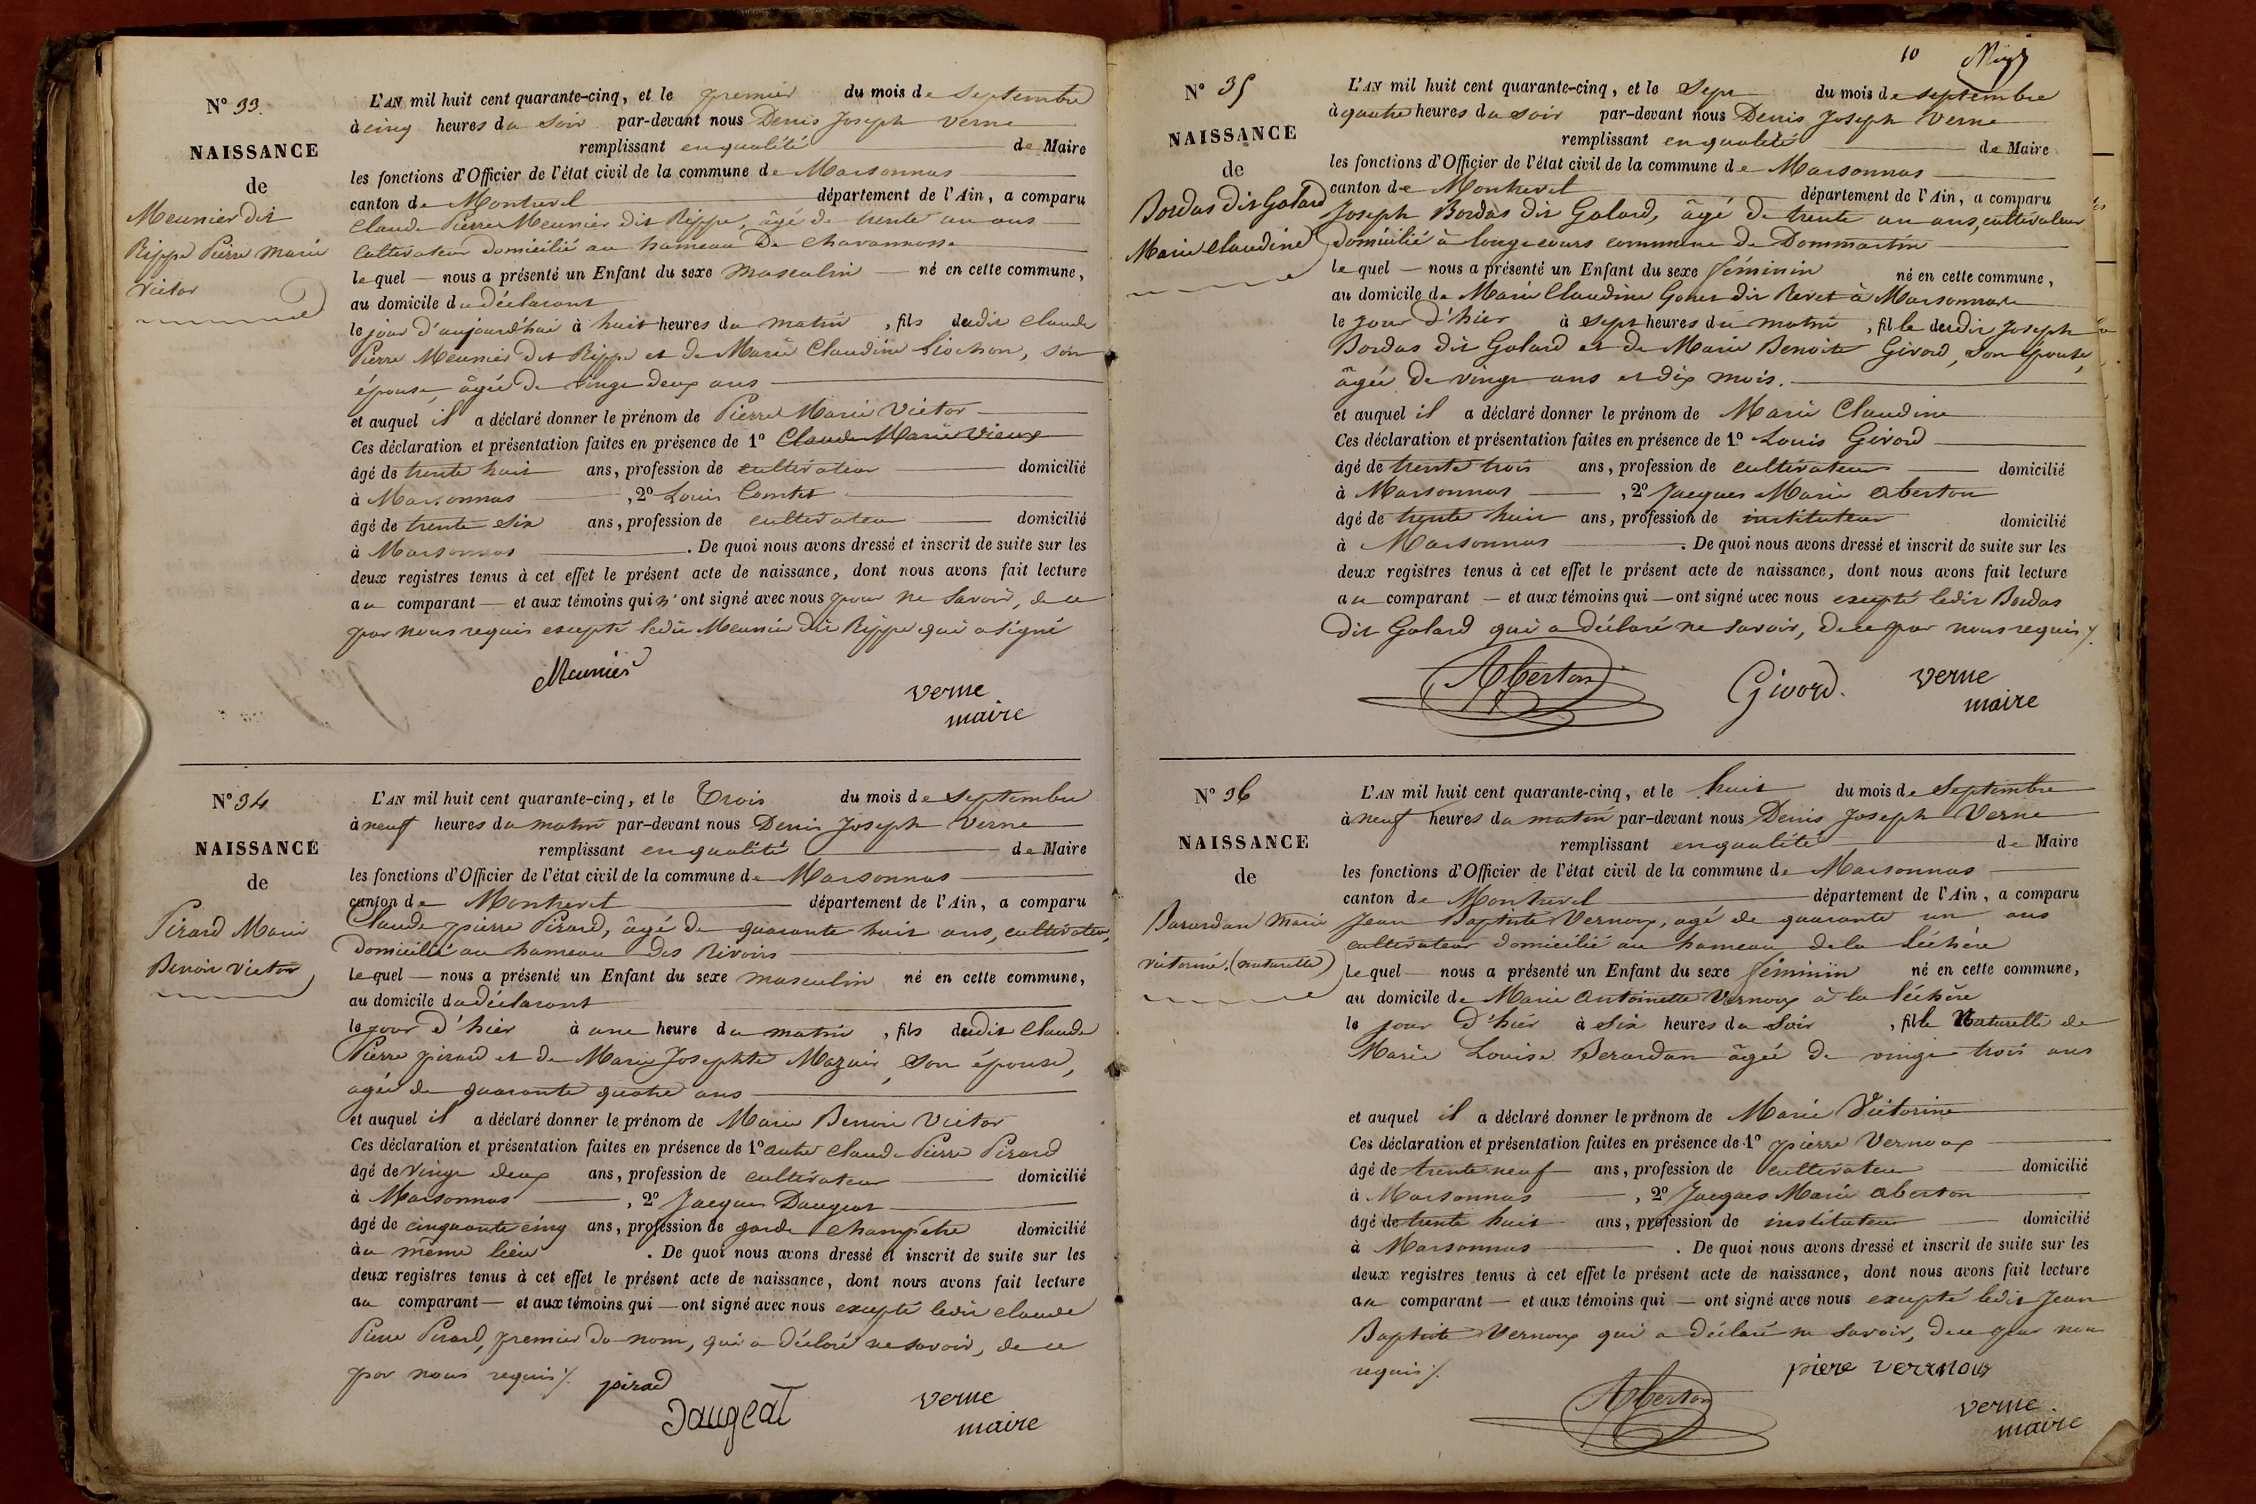 N° 33.
NAISSANCE
de
Meunier dit
Rippe Pierre Marie
Victor
L'AN mil huit cent quarante-cinq, et le premier du mois de Septembre
à cinq heures du soir par-devant nous Denis Joseph Verne
remplissant en qualité de Maire
les fonctions d'Officier de l'état civil de la commune de Marsonnas
canton de Montrevel département de l'Ain, a comparu
Claude Pierre Meunier dit Rippe, âgé de trente un ans
Cultivateur domicilié au hameau De Chavannosse
lequel — nous a présenté un Enfant du sexe masculin — né en cette commune,
au domicile du déclarant
le jour d'aujourd'hui à huit heures du matin, fils dudit Claude
Pierre Meunier dit Rippe et de Marie Claudine Sochon, son
épouse, âgée de vingt deux ans
et auquel il a déclaré donner le prénom de Pierre Marie Victor
Ces déclaration et présentation faites en présence de 1° Claude Marie Vieux
âgé de trente huit ans, profession de cultivateur domicilié
à Marsonnas, 2° Louis Comtet
âgé de trente six ans, profession de cultivateur domicilié
à Marsonnas. De quoi nous avons dressé et inscrit de suite sur les
deux registres tenus à cet effet le présent acte de naissance, dont nous avons fait lecture
au comparant — et aux témoins qui n'ont signé avec nous pour ne savoir, de ce
par nous requis excepté ledit Meunier dit Rippe qui a signé
Meunier
verne
maire
N° 34
NAISSANCE
de
Pirard Marie
Benoit Victor
L'AN mil huit cent quarante-cinq, et le Trois du mois de Septembre
à neuf heures du matin par-devant nous Denis Joseph Verne
remplissant en qualité de Maire
les fonctions d'Officier de l'état civil de la commune de Marsonnas
canton de Montrevel département de l'Ain, a comparu
Claude pierre Pirard, âgé de quarante huit ans, cultivateur,
domicilié au hameau des Rivoirs
lequel — nous a présenté un Enfant du sexe masculin né en cette commune,
au domicile du déclarant
le jour d'hier à une heure du matin, fils dudit Claude
Pierre pirard et de Marie Josephte Mazuir, son épouse,
agée de quarante quatre ans
et auquel il a déclaré donner le prénom de Marie Benoit Victor
Ces déclaration et présentation faites en présence de 1° autre Claude Pierre Pirard
âgé de vingt deux ans, profession de cultivateur domicilié
à Marsonnas, 2° Jacques Daugeat
âgé de cinquante cinq ans, profession de garde champêtre domicilié
au même lieu. De quoi nous avons dressé et inscrit de suite sur les
deux registres tenus à cet effet le présent acte de naissance, dont nous avons fait lecture
au comparant — et aux témoins qui — ont signé avec nous excepté ledit Claude
Pierre Pirard, premier du nom, qui a déclaré ne savoir, de ce
par nous requis /.
pirad
Daugeat
verne
maire
10
N° 35
NAISSANCE
de
Bordas dit Galard
Marie Claudine
L'AN mil huit cent quarante-cinq, et le Sept du mois de septembre
à quatre heures du soir par-devant nous Denis Joseph Verne
remplissant en qualité de Maire
les fonctions d'Officier de l'état civil de la commune de Marsonnas
canton de Montrevel département de l'Ain, a comparu
Joseph Bordas dit Galard, âgé de trente un ans, cultivateur
domicilié à longecours commune de Dommartin
lequel — nous a présenté un Enfant du sexe féminin né en cette commune,
au domicile de Marie Claudine Goner dit Revet à Marsonnas
le jour d'hier à sept heures du matin, fille dudit Joseph
Bordas dit Galard et de Marie Benoite Givord, son épouse,
âgée de vingt ans et dix mois.
et auquel il a déclaré donner le prénom de Marie Claudine
Ces déclaration et présentation faites en présence de 1° Louis Givord
âgé de trente trois ans, profession de cultivateur domicilié
à Marsonnas, 2° Jacques Marie Aberton
âgé de trente huit ans, profession de instituteur domicilié
à Marsonnas. De quoi nous avons dressé et inscrit de suite sur les
deux registres tenus à cet effet le présent acte de naissance, dont nous avons fait lecture
au comparant — et aux témoins qui — ont signé avec nous excepté ledit Bordas
dit Galard qui a déclaré ne savoir, de ce par nous requis /.
Aberton
Givord.
verne
maire
N° 36
NAISSANCE
de
Berardan Marie
victorine. (naturelle)
L'AN mil huit cent quarante-cinq, et le huit du mois de Septembre
à neuf heures du matin par-devant nous Denis Joseph Verne
remplissant en qualité de Maire
les fonctions d'Officier de l'état civil de la commune de Marsonnas
canton de Montrevel département de l'Ain, a comparu
Jean Baptiste Vernoux, agé de quarante un ans
cultivateur domicilié au hameau de la Léchère
lequel — nous a présenté un Enfant du sexe féminin né en cette commune,
au domicile de Marie Antoinette Vernoux à la Léchère
le jour d'hier à six heures du soir, fille Naturelle de
Marie Louise Berardan âgée de vingt trois ans
et auquel il a déclaré donner le prénom de Marie Victorine
Ces déclaration et présentation faites en présence de 1° pierre Vernoux
âgé de trente neuf ans, profession de cultivateur domicilié
à Marsonnas, 2° Jacques Marie Aberton
âgé de trente huit ans, profession de instituteur domicilié
à Marsonnas. De quoi nous avons dressé et inscrit de suite sur les
deux registres tenus à cet effet le présent acte de naissance, dont nous avons fait lecture
au comparant — et aux témoins qui — ont signé avec nous excepté ledit Jean
Baptiste Vernoux qui a déclaré ne savoir, de ce par nous
requis /.
piere vernoux
Aberton
verne
maire